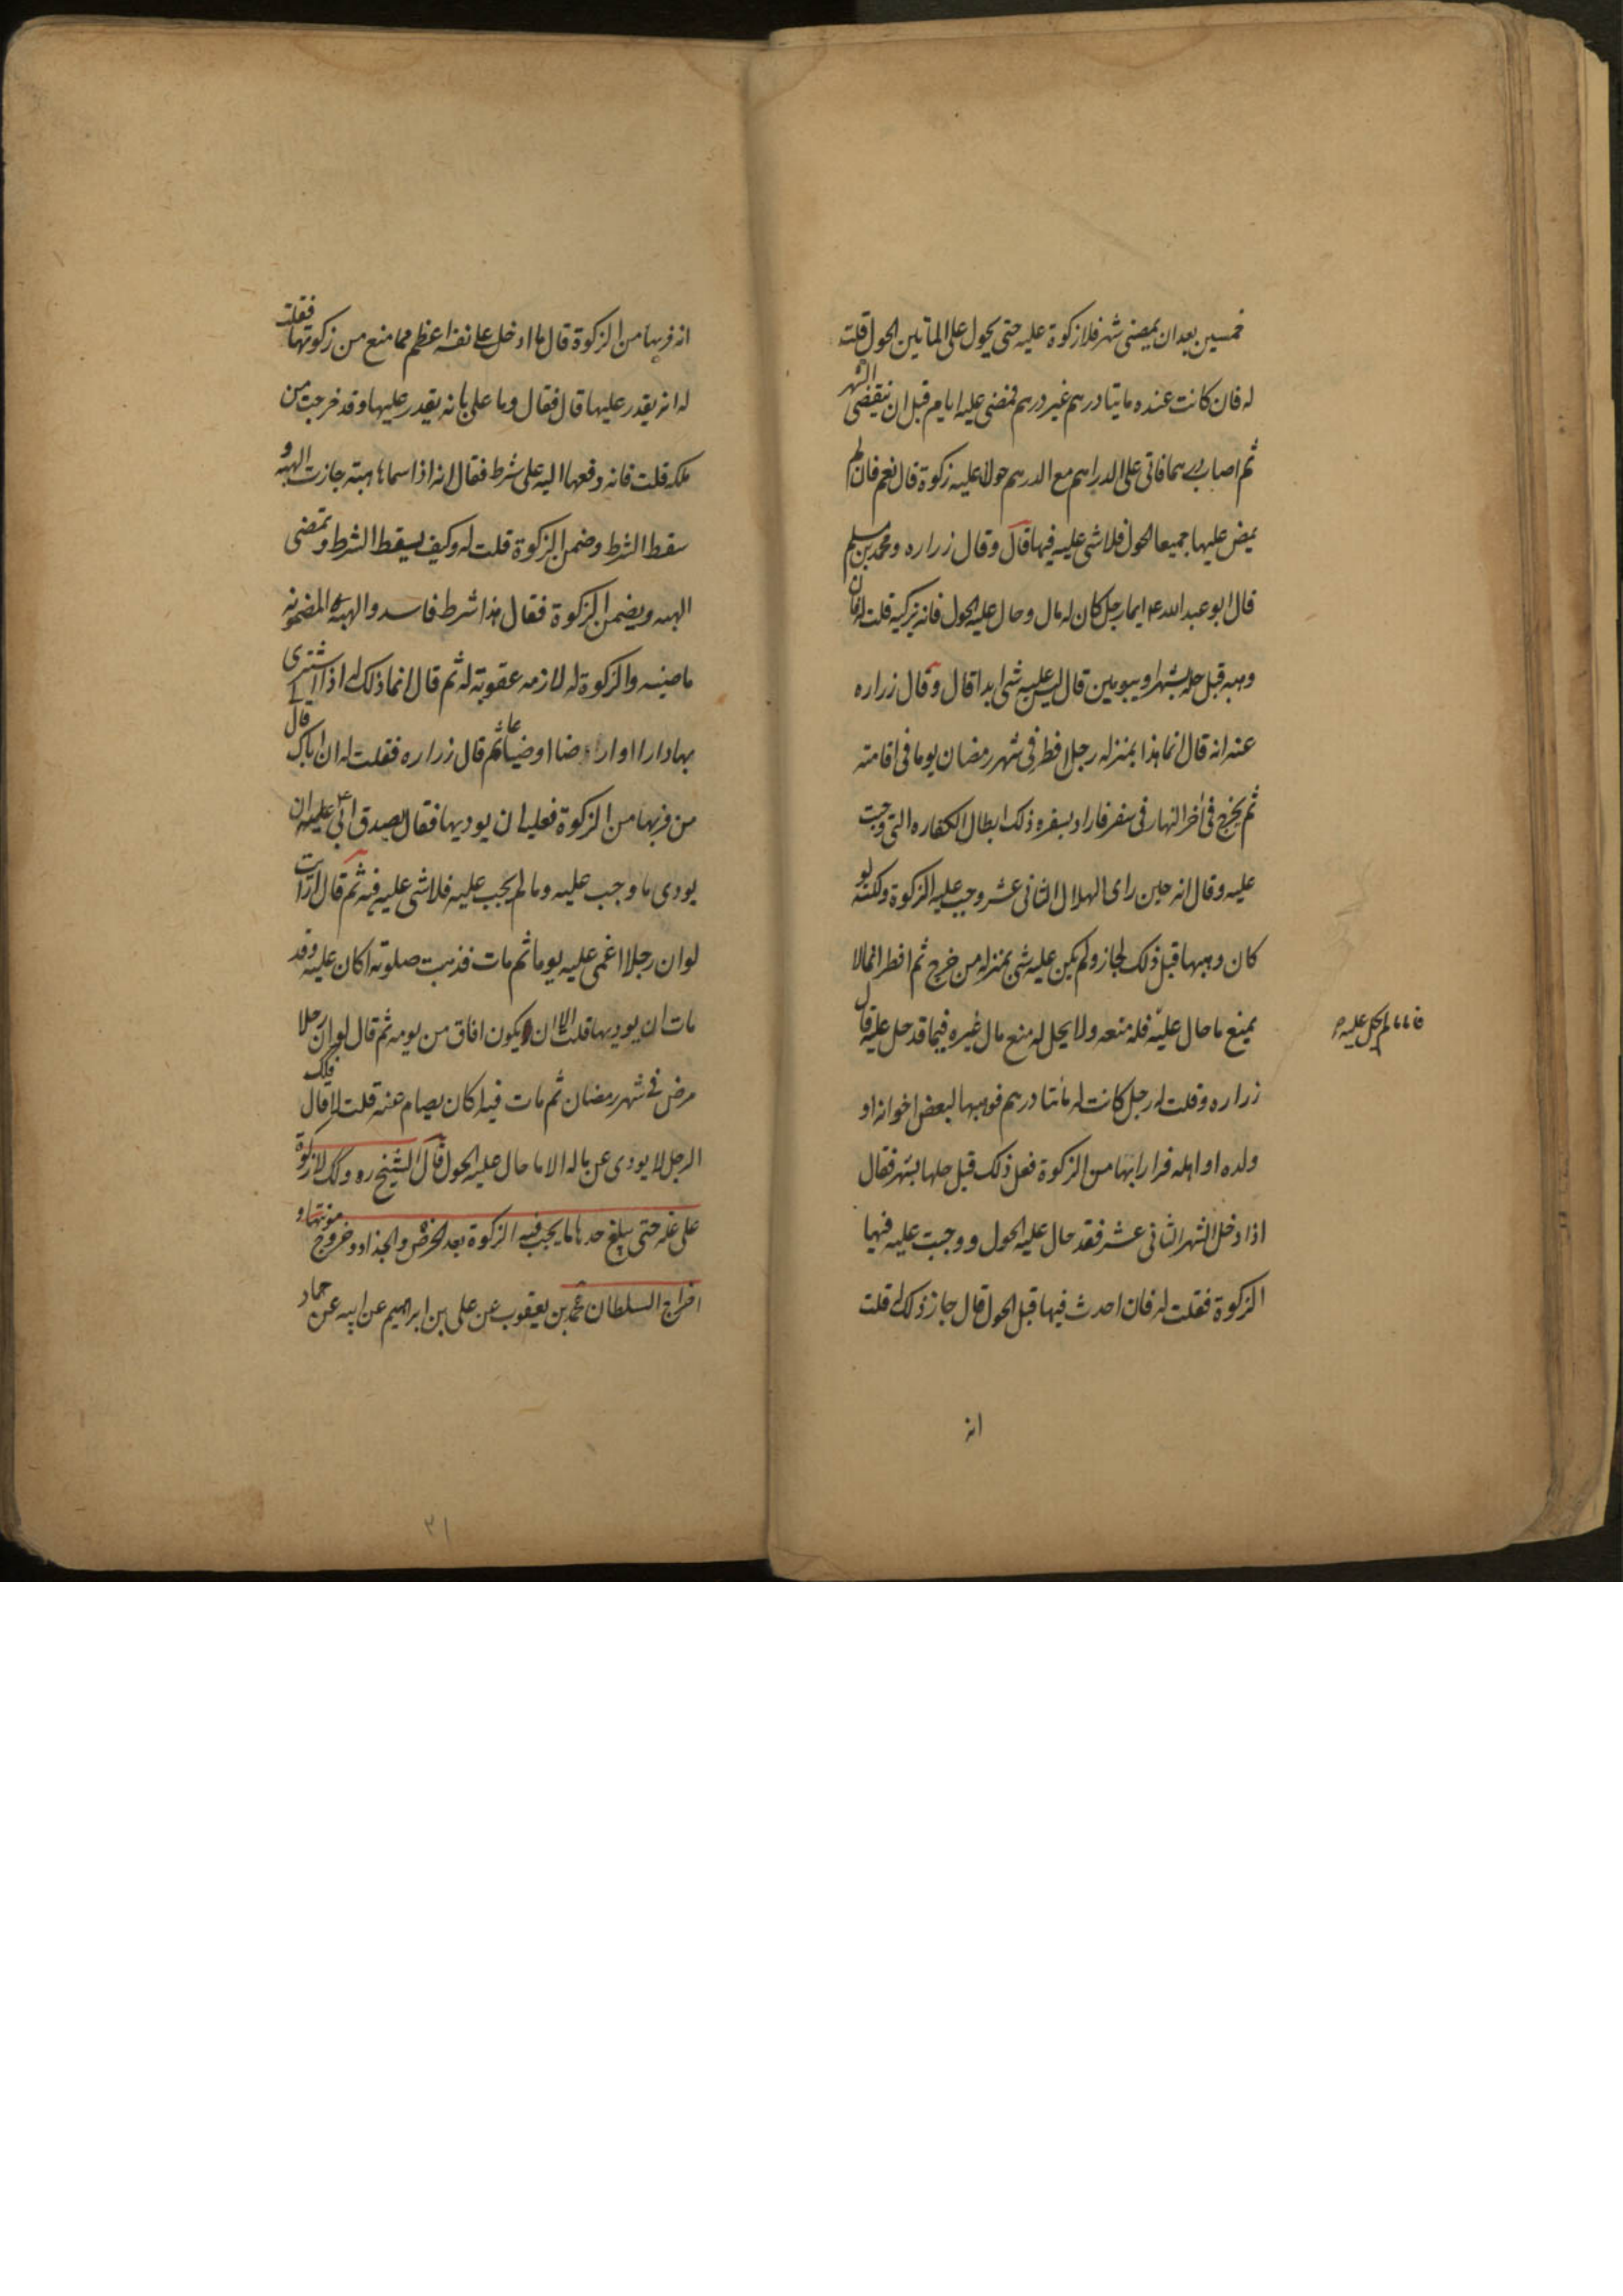 خمسين بعد ان يمضى شهر فلا زكوة عليه حتى يحول على الماتين الحول قلت
له فان كانت عنده مايتا درهم غير درهم فمضى عليه ايام قبل ان ينقضى الشهر
ثم اصاب درهما فاتى على الدراهم مع الدرهم حول اعليه زكوة قال نعم فان لم
يمض عليها جميعا الحول فلا شى عليه فيها قال وقال زراره ومحمد بن مسلم
قال ابو عبد الله ع ايما رجل كان له مال وحال عليه الحول فانه يزكيه قلت له فان
وهبه قبل حله بشهر او بيومين قال ليس عليه شى ابدا قال وقال زراره
عنه انه قال انما هذا بمنزله رجل افطر فى شهر رمضان يوما فى اقامته
ثم يخرج فى اخر النهار فى سفر فاراد بسفره ذلك ابطال الكفاره التى وجبت
عليه وقال انه حين راى الهلال الثانى عشر وجب عليه الزكوة ولكنه لو
كان وهبها قبل ذلك لجاز ولم يكن عليه شى بمنزله من خرج ثم افطر انما لا
يمنع ما حال عليه فله منعه ولا يحل له منع مال غيره فيما قد حل عليه قال
فاما ما لم يحل عليه
زراره وقلت له رجل كانت له مائتا درهم فوهبها لبعض اخوانه او
ولده او اهله فرارا بها من الزكوة فعل ذلك قبل حلها بشهر فقال
اذا دخل الشهر الثانى عشر فقد حال عليه الحول ووجبت عليه فيها
الزكوة فقلت له فان احدث فيها قبل الحول قال جاز ذلك له قلت
انه
انه فر بها من الزكوة قال ما ادخل على نفسه اعظم مما منع من زكوتها فقلت
له انه يقدر عليها قال فقال وما على بانه يقدر عليها وقد خرجت من
ملكه قلت فانه دفعها اليه على شرط فقال انه اذا سماها هبته جازت الهبه و
سقط الشرط وضمن الزكوة قلت له وكيف يسقط الشرط وتمضى
الهبه ويضمن الزكوة فقال هذا شرط فاسد والهبه المضمونه
ماضيه والزكوة له لازمه عقوبة له ثم قال انما ذلك له اذا اشترى
بها دارا او ارضا او ضياعا ثم قال زراره فقلت له ان اباك قال
من فر بها من الزكوة فعليه ان يوديها فقال صدق ابى ع عليه ان
يودى ما وجب عليه وما لم يجب عليه فلا شى عليه فيه ثم قال ارايت
لو ان رجلا اغمى عليه يوما ثم مات فذهبت صلوته اكان عليه وقد
مات ان يوديها قلت لا الا ان يكون افاق من يومه ثم قال لو ان رجلا
مرض فى شهر رمضان ثم مات فيه اكان يصام عنه قلت لا قال فكك
الرجل لا يودى عن ماله الا ما حال عليه الحول قال الشيخ ره وكك لا زكوة
على غله حتى يبلغ حدها ما يجب فيه الزكوة بعد الخرص والجذاذ وخروج مونتها و
اخراج السلطان محمد بن يعقوب عن على بن ابراهيم عن ابيه عن حماد
٣١